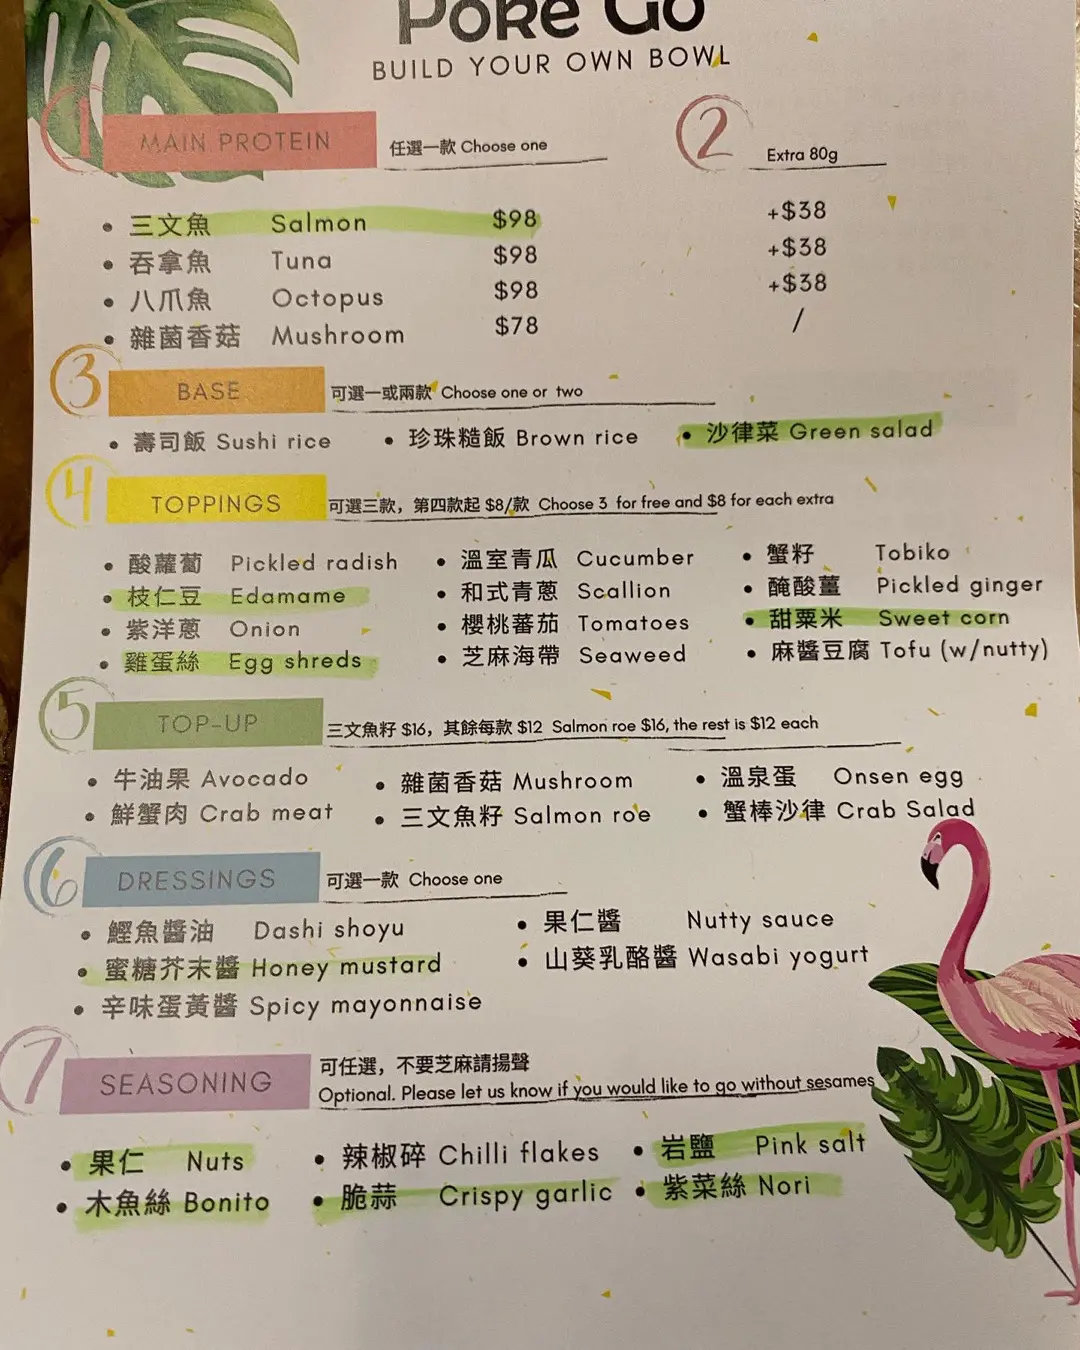 Poke Go
BUILD YOUR OWN BOWL
1 MAIN PROTEIN 任選一款 Choose one
2 Extra 80g
• 三文魚 Salmon $98 +$38
• 吞拿魚 Tuna $98 +$38
• 八爪魚 Octopus $98 +$38
• 雜菌香菇 Mushroom $78 /
3 BASE 可選一或兩款 Choose one or two
• 壽司飯 Sushi rice • 珍珠糙飯 Brown rice • 沙律菜 Green salad
4 TOPPINGS 可選三款，第四款起 $8/款 Choose 3 for free and $8 for each extra
• 酸蘿蔔 Pickled radish • 溫室青瓜 Cucumber • 蟹籽 Tobiko
• 枝仁豆 Edamame • 和式青蔥 Scallion • 醃酸薑 Pickled ginger
• 紫洋蔥 Onion • 櫻桃蕃茄 Tomatoes • 甜粟米 Sweet corn
• 雞蛋絲 Egg shreds • 芝麻海帶 Seaweed • 麻醬豆腐 Tofu (w/nutty)
5 TOP-UP 三文魚籽 $16，其餘每款 $12 Salmon roe $16, the rest is $12 each
• 牛油果 Avocado • 雜菌香菇 Mushroom • 溫泉蛋 Onsen egg
• 鮮蟹肉 Crab meat • 三文魚籽 Salmon roe • 蟹棒沙律 Crab Salad
6 DRESSINGS 可選一款 Choose one
• 鰹魚醬油 Dashi shoyu • 果仁醬 Nutty sauce
• 蜜糖芥末醬 Honey mustard • 山葵乳酪醬 Wasabi yogurt
• 辛味蛋黃醬 Spicy mayonnaise
7 SEASONING 可任選，不要芝麻請揚聲
Optional. Please let us know if you would like to go without sesames
• 果仁 Nuts • 辣椒碎 Chilli flakes • 岩鹽 Pink salt
• 木魚絲 Bonito • 脆蒜 Crispy garlic • 紫菜絲 Nori